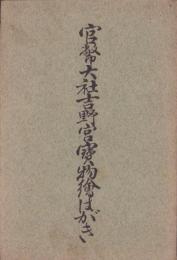 官幣大社吉野宮寶物繪はがき